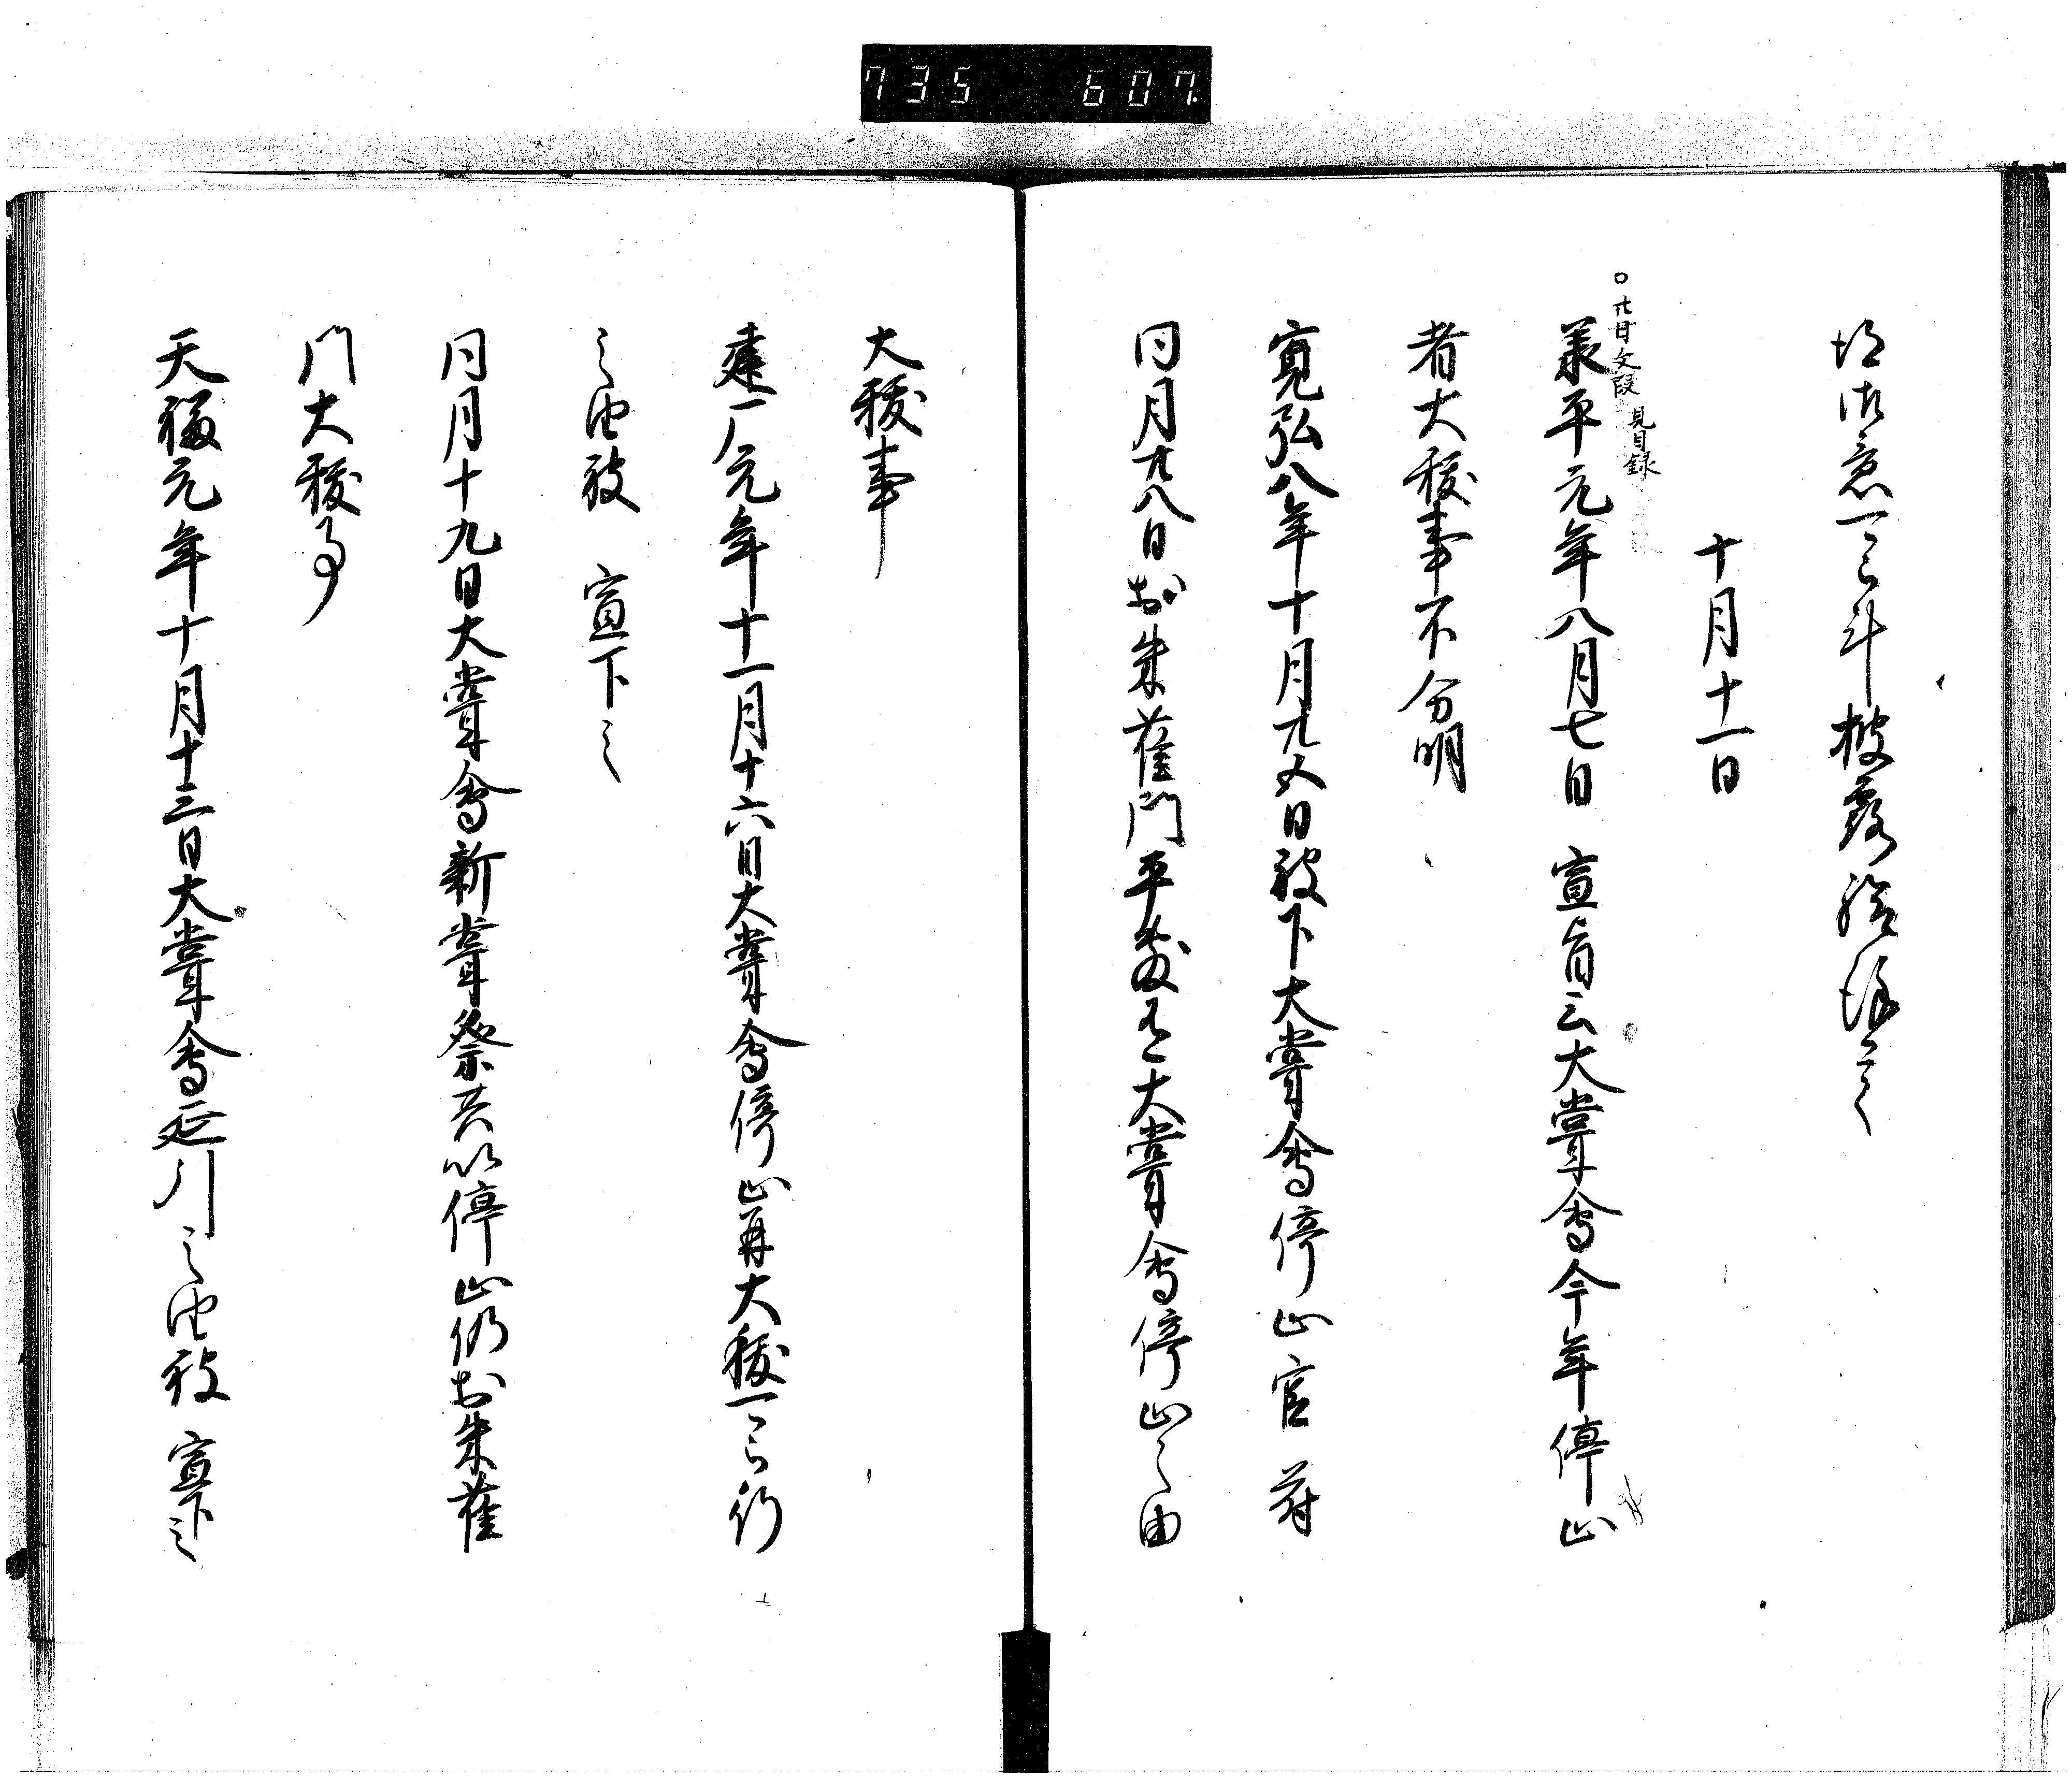 735 607
得御意可令計披露給候云々
十月十一日
○廿日文段見目録
承平元年八月七日 宣旨云大嘗會今年停止
者大祓事不分明
寛弘八年十月廿五日被下大嘗會停止官符
同月廿八日於朱雀門 大嘗會停止之由
大祓事
建仁元年十一月十六日大嘗會停止再大祓可行
之由被 宣下之
同月十九日大嘗會新嘗祭共以停止仍於朱雀
門大祓事
天福元年十月十三日大嘗會延引之由被 宣下之